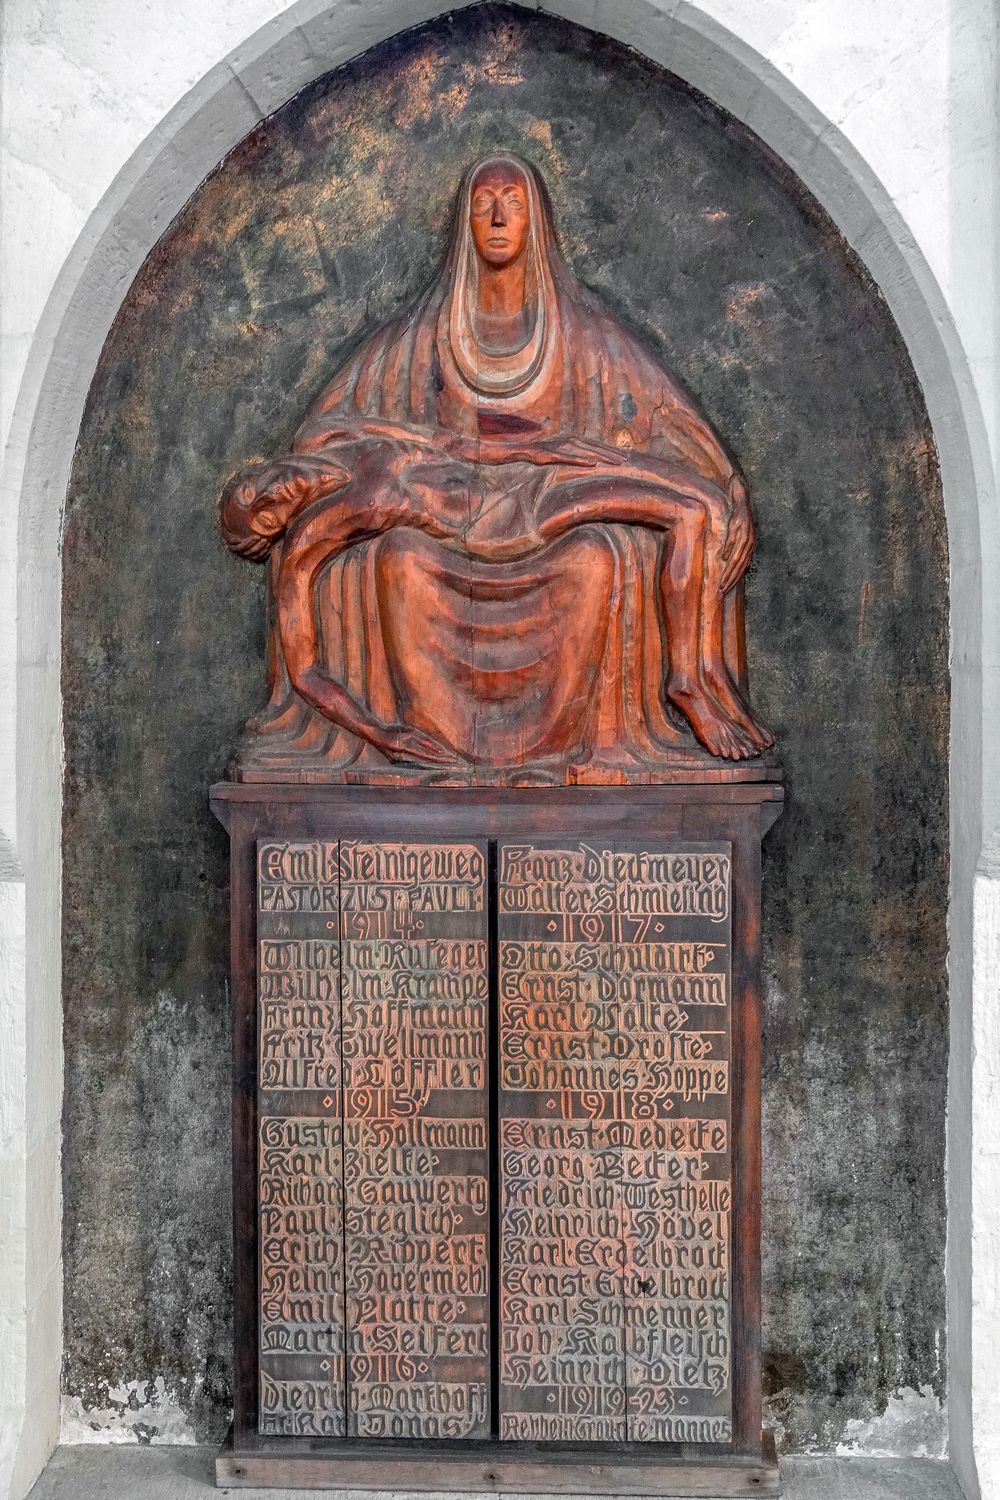 Emil·Steinigeweg
PASTOR·ZU·ST·PAULI·
·1914·
Wilhelm·Rusegel
Wilhelm·Krampe
Franz·Hoffmann
Fritz·Gwellmann
Alfred·Löffler
·1915·
Gustav·Hollmann
Karl·Zielke·
Richard·Gauwerky
Paul·Steglich·
Erich·Rippert·
Heinr·Habermehl
Emil·Platte·
Martin·Seifert
·1916·
Diedrich·Markhoff
Fr·Karl·Jonas·
Franz·Dieckmeyer
Walter·Schmiesing
·1917·
Otto·Schuldirk·
Ernst·Dormann
Karl·Wolke·
Ernst·Droste·
Johannes·Hoppe
·1918·
Ernst·Medecke
Georg·Becker·
Friedrich·Westhelle
Heinrich·Hövel
Karl·Erdelbrock
Ernst·Erdelbrock
Karl·Schmenner
Joh·Kalbfleisch
Heinrich·Dietz
·1919-23·